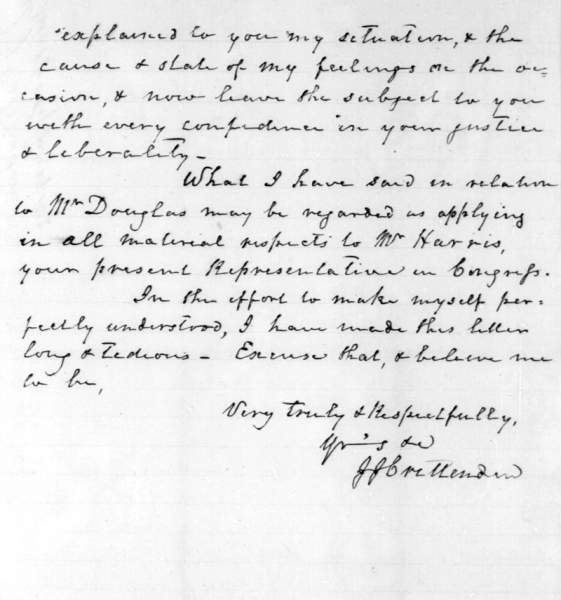 explained to you my situation, & the
cause & state of my feelings on the oc=
casion, & now leave the subject to you
with every confidence in your justice
& liberality -
What I have said in relation
to Mr Douglas may be regarded as applying
in all material respects to Mr Harris,
your present Representative in Congress.
In the effort to make myself per=
fectly understood, I have made this letter
long & tedious - Excuse that, & believe me
to be,
Very truly & Respectfully,
Yr's &c
J J Crittenden